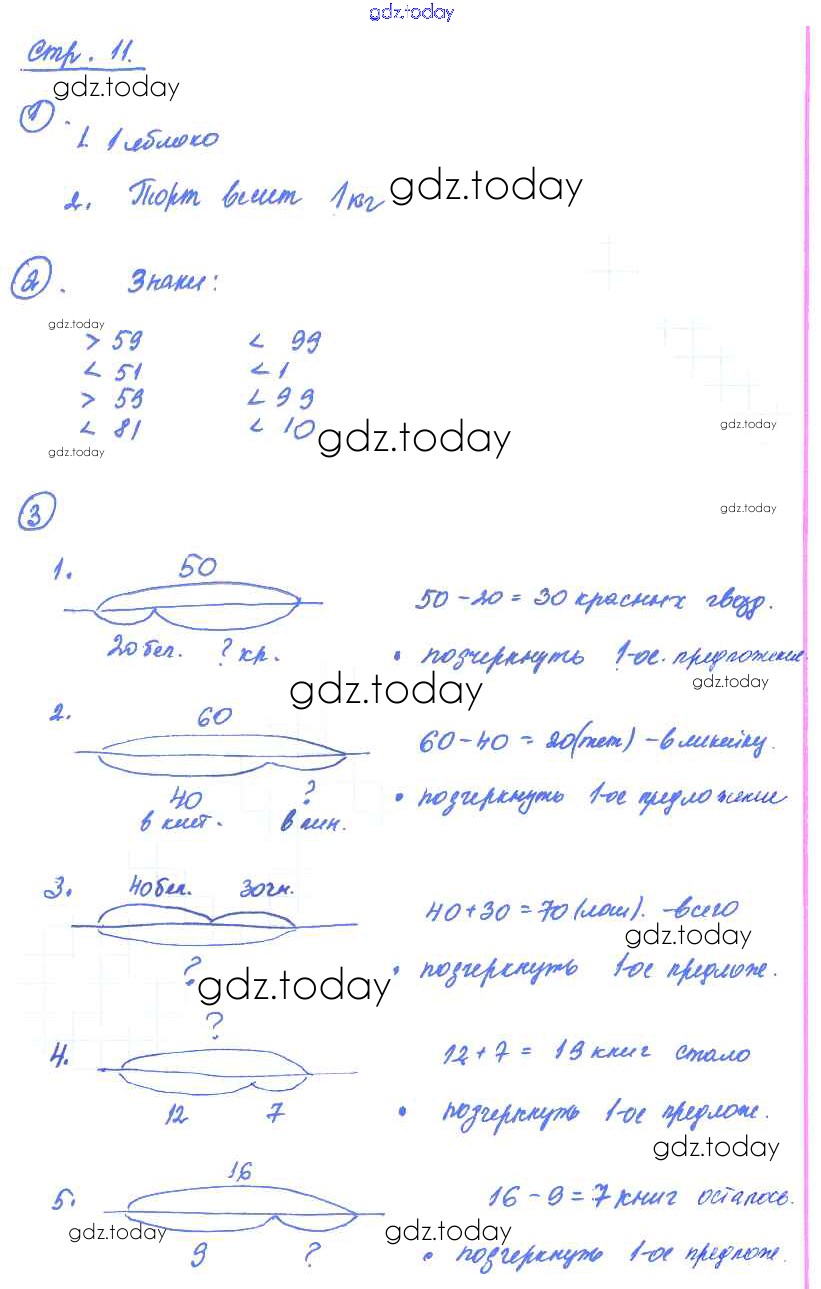 gdz.today
Стр. 11.
gdz.today
1.
1. 1 яблоко
2. Торт весит 1 кг gdz.today
2. Знаки:
gdz.today
> 59 < 99
< 51 < 1
> 59 < 99
< 81 < 10 gdz.today
gdz.today
gdz.today
gdz.today
3
1. 50
50 - 20 = 30 красных гвозд.
20 бел. ? кр.
• подчеркнуть 1-ое предложение
gdz.today
gdz.today
2. 60
60 - 40 = 20 (тет) - в линейку.
40 ?
в клет. в лин.
• подчеркнуть 1-ое предложение
3. 40 бел. 30 чн.
40 + 30 = 70 (лош). - всего
gdz.today
?
• подчеркнуть 1-ое предложе.
gdz.today
?
4. 12 + 7 = 19 книг стало
12 7
• подчеркнуть 1-ое предложе.
gdz.today
16
5. 16 - 9 = 7 книг осталось.
gdz.today gdz.today
9 ?
• подчеркнуть 1-ое предложе.